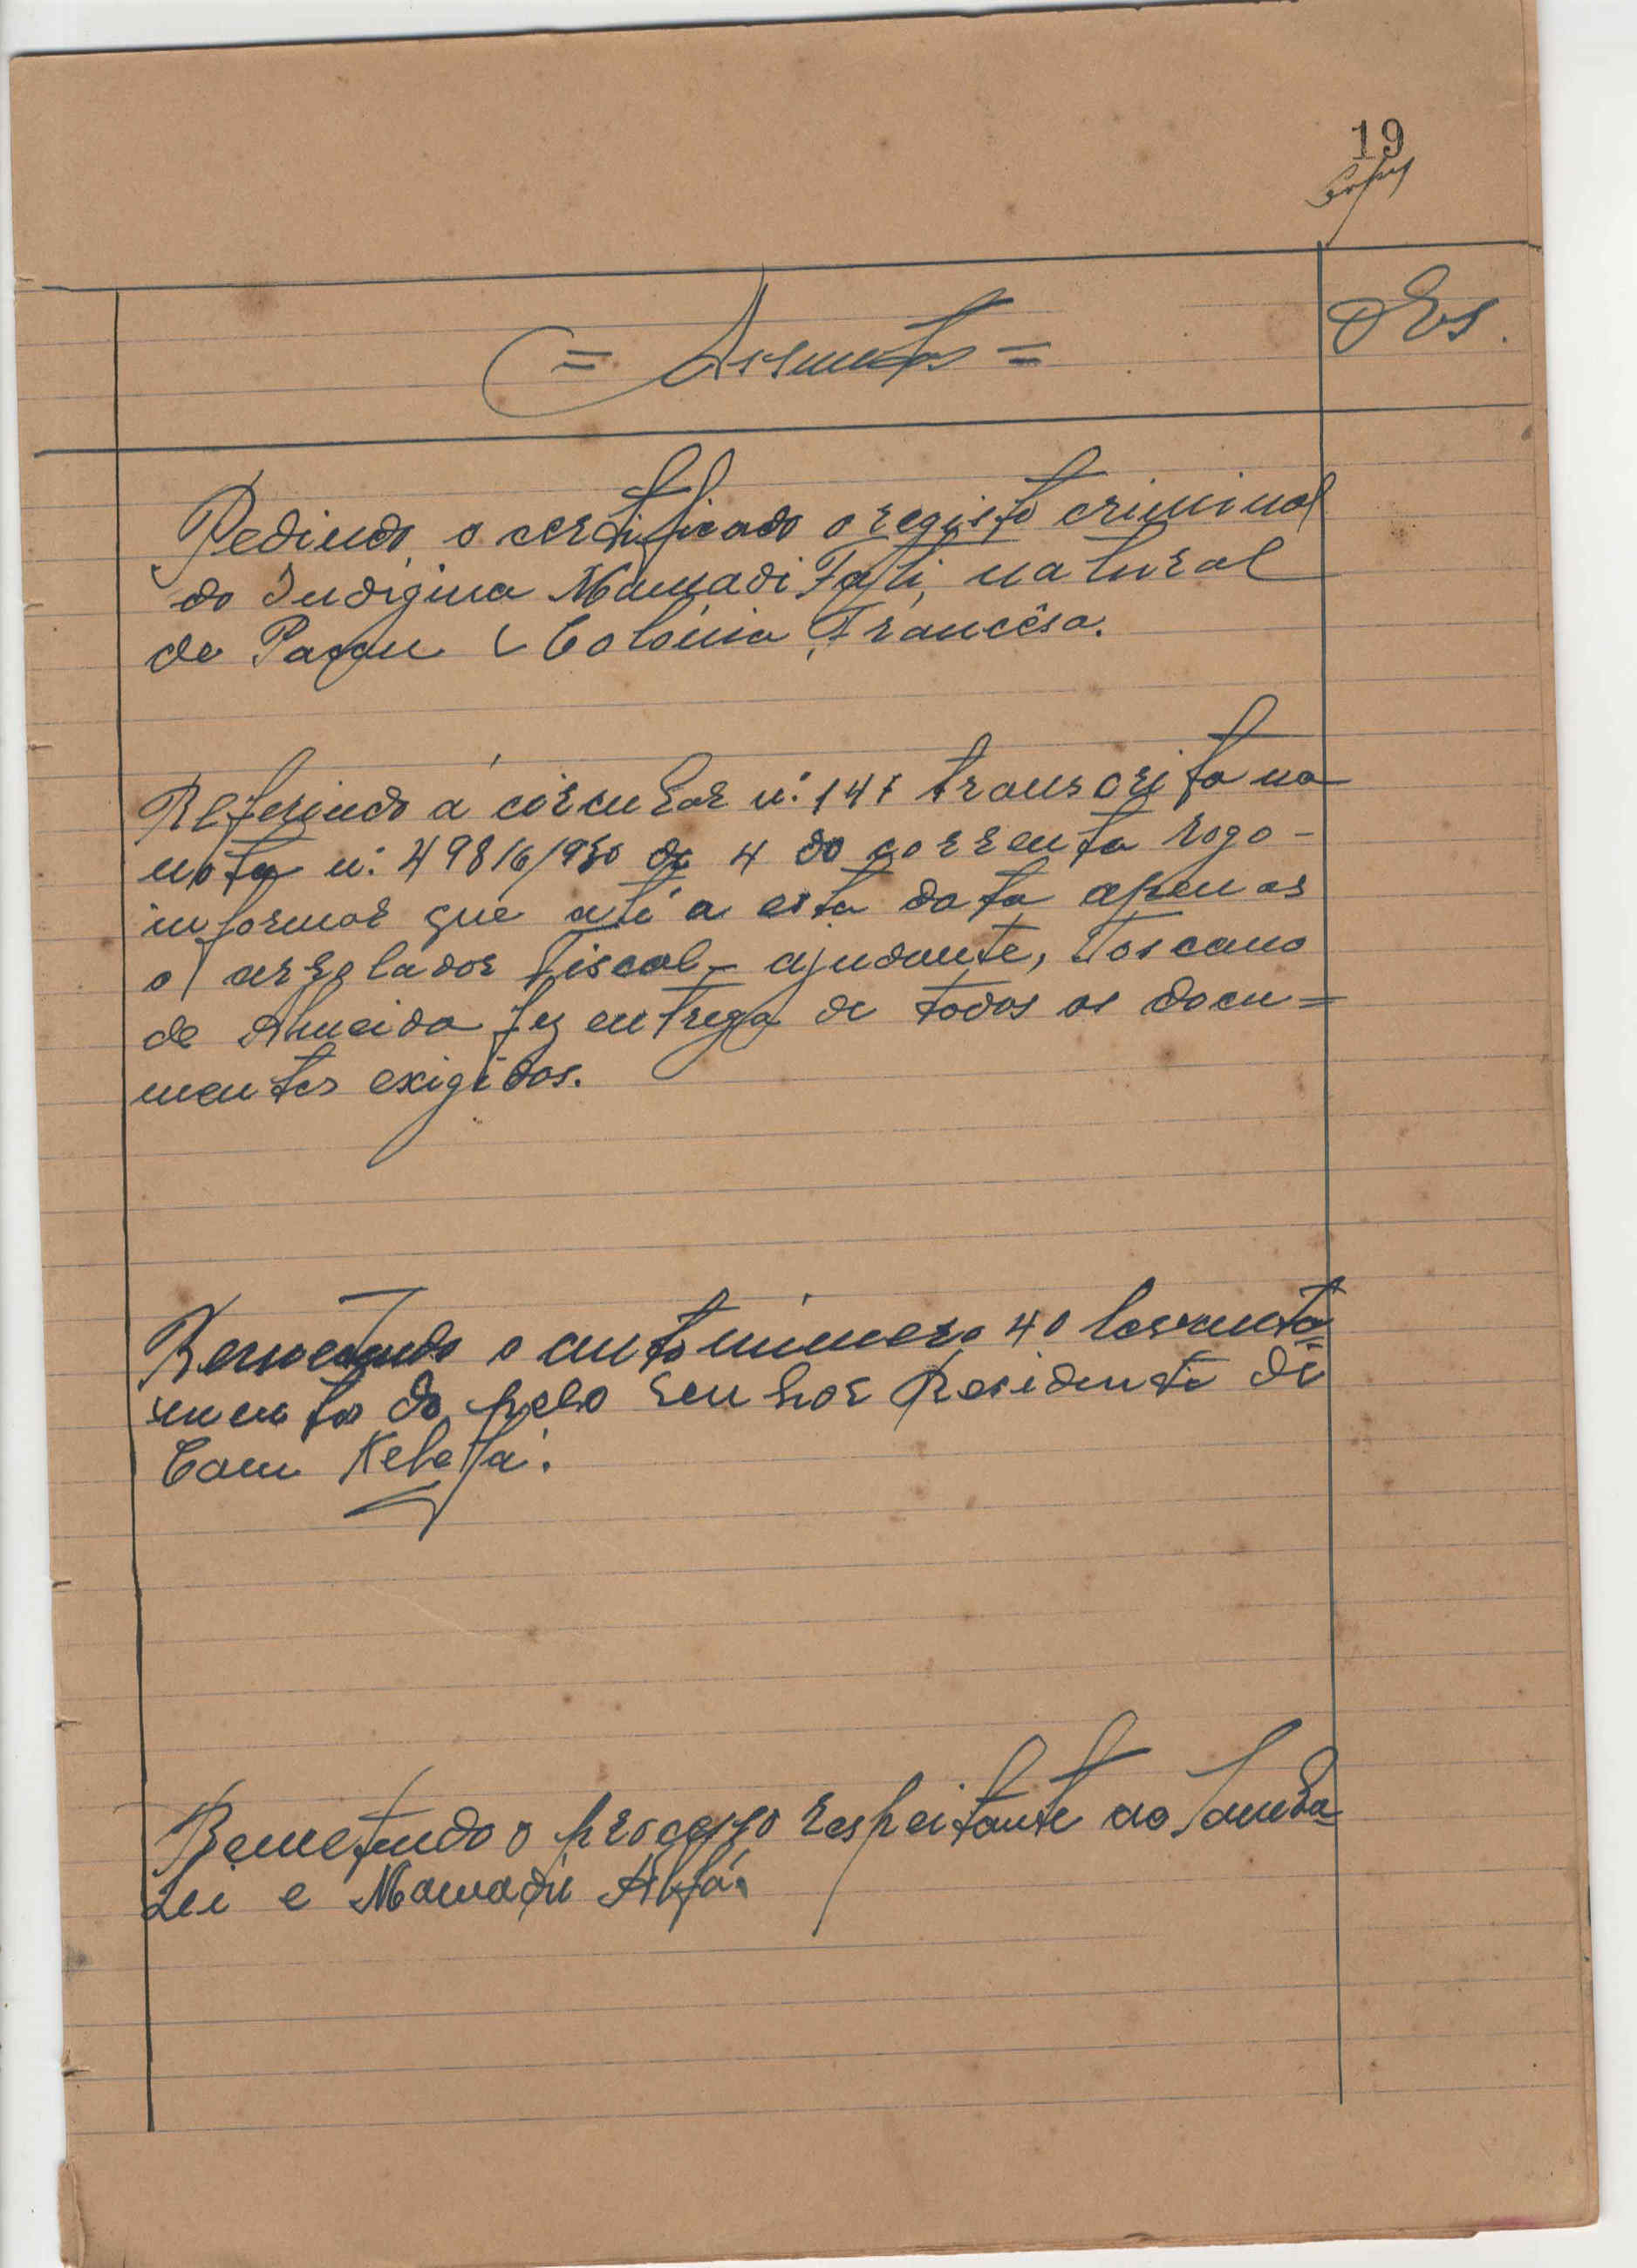 19
= Assuntos =
Obs.
Pedindo o certificado o registo criminal
do Indigina Mamadi Fati, natural
de Colónia Francêsa.
Referindo á circular n.º 147 transcrita na
nota n.º 498/6/950 de 4 do corrente rogo-
informar que até a esta data apenas
o arrolador fiscal-ajudante, Toscano
de Almeida fez entrega de todos os docu=
mentos exigidos.
Remetendo o auto número 40 levanta=
mentos do pelo senhor Presidente de
Cam
Remetendo o processo respeitante ao Samba
Lei e Mamadú Alfá.